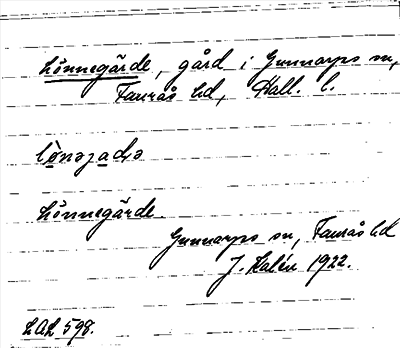 Lönnegärde, gård i Gunnarps sn,
Faurås hd, Hall. l.
Lönnegärde.
Gunnarps sn, Faurås hd
J. Kalén 1922.
LAL 598.